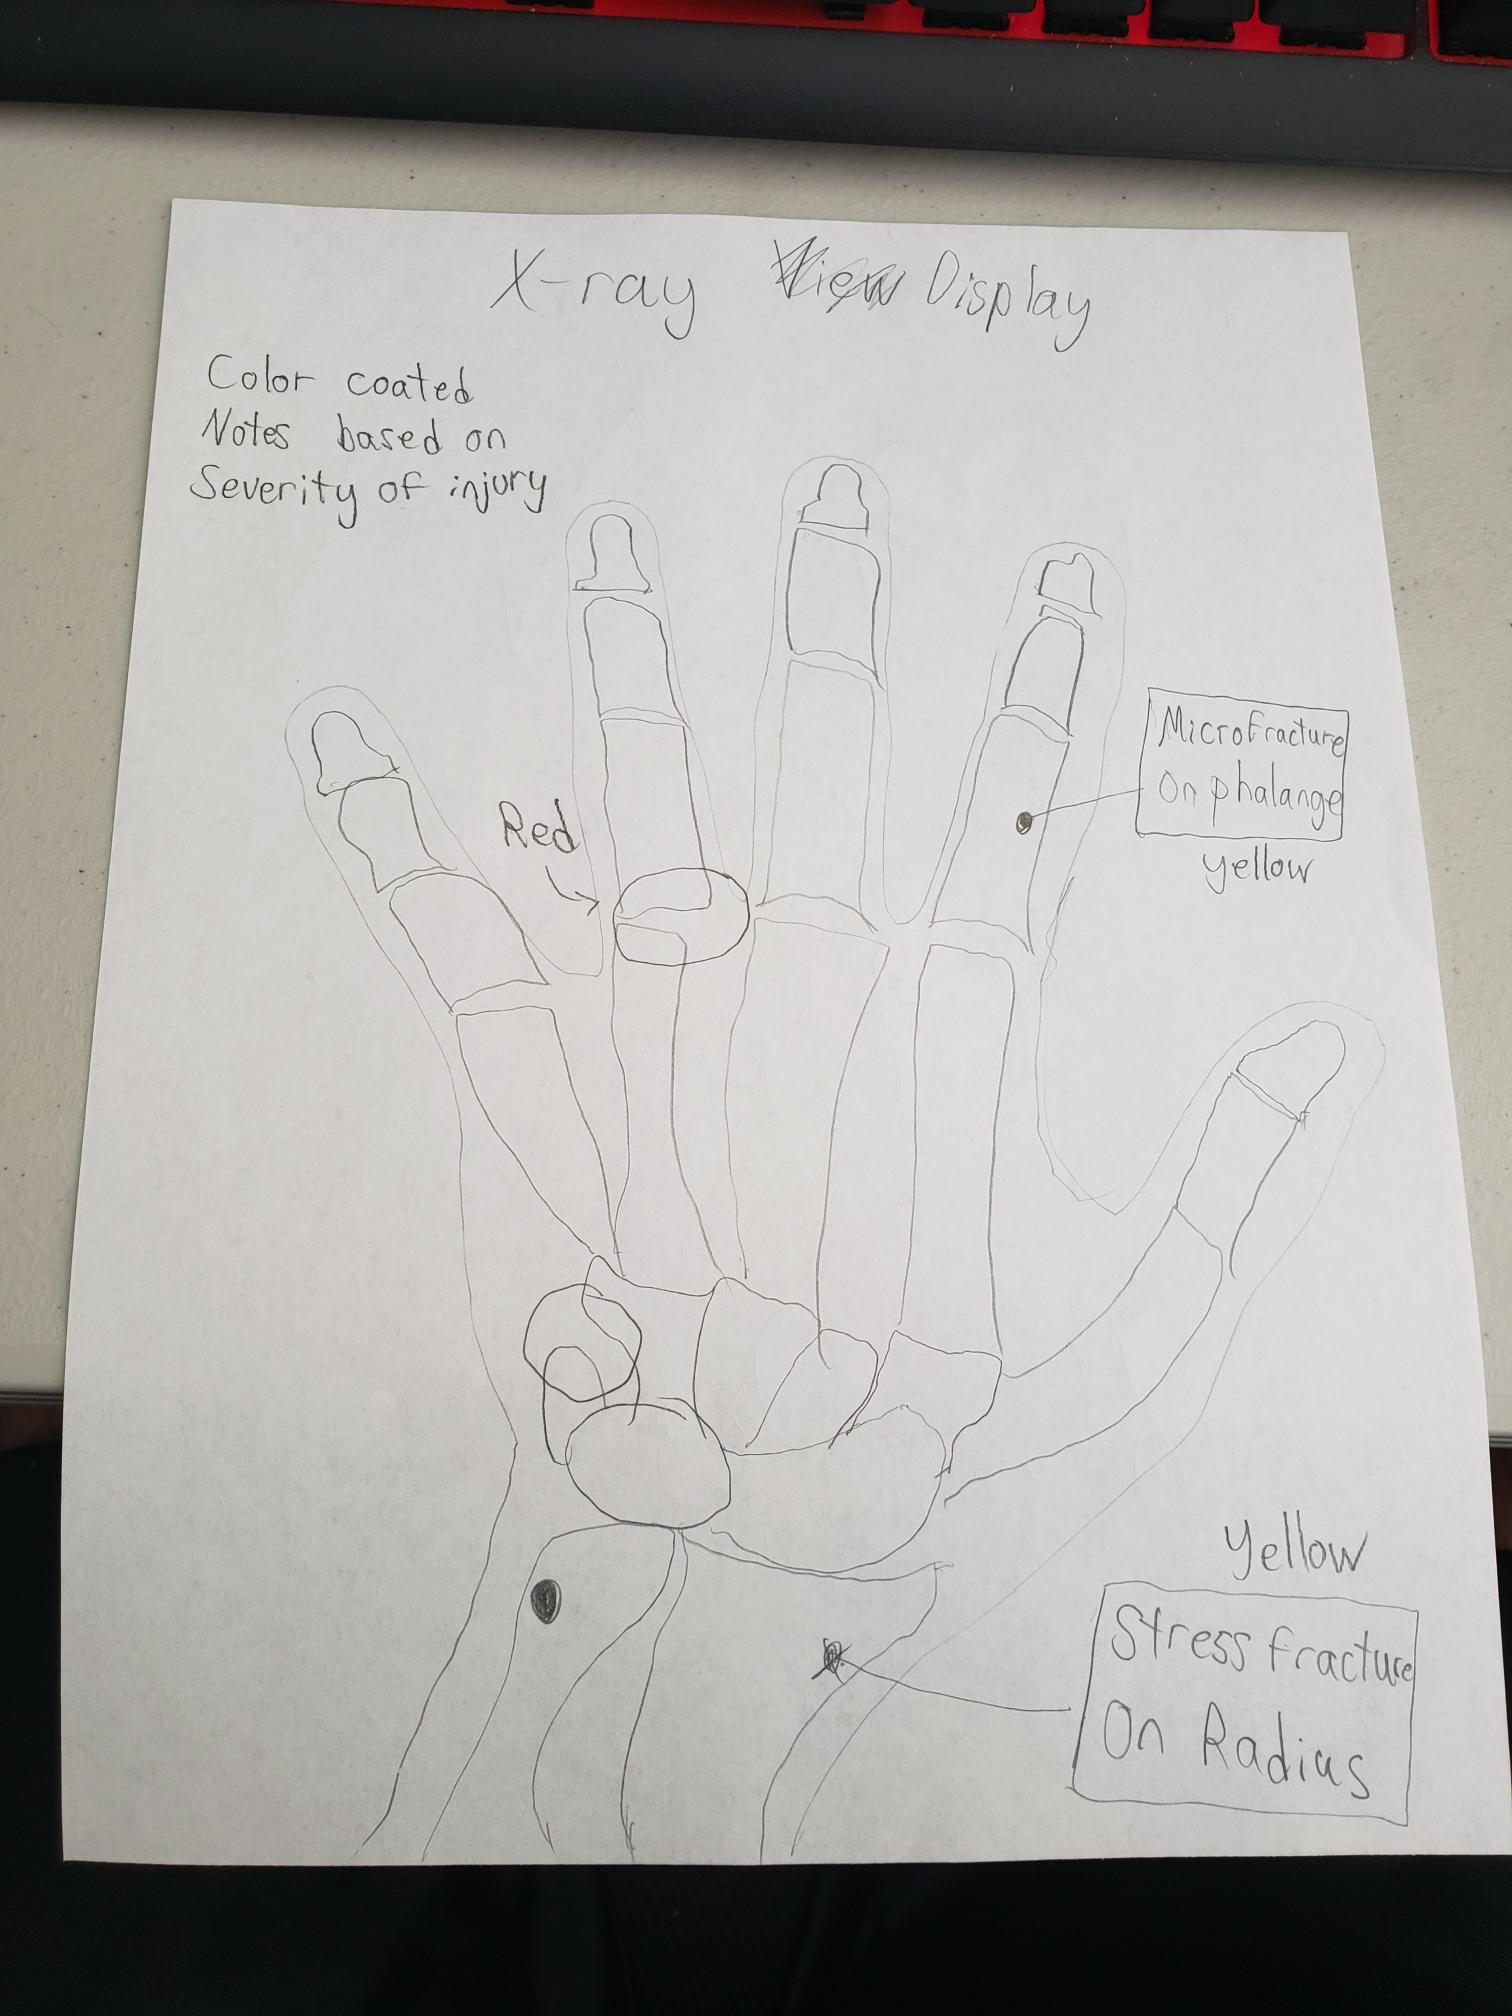 X-ray View Display
Color coated
Notes based on
Severity of injury
Red
Microfracture
on phalange
yellow
yellow
Stress fracture
On Radius